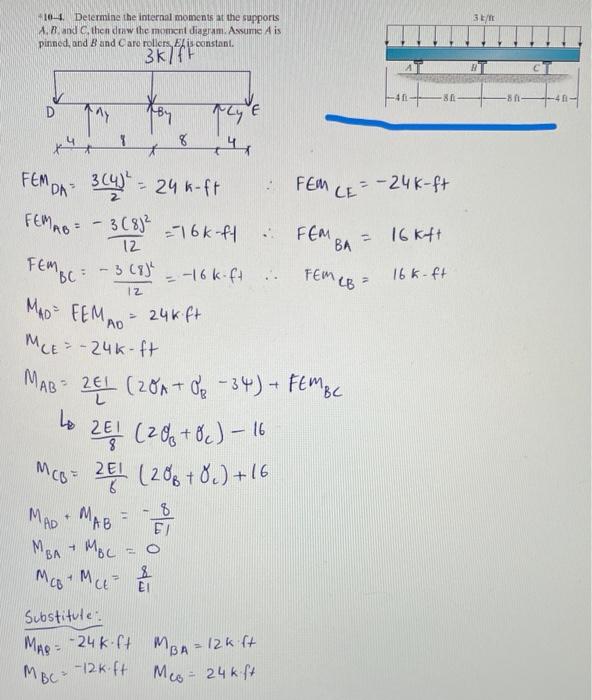 *10–4. Determine the internal moments at the supports
A, B, and C, then draw the moment diagram. Assume A is
pinned, and B and C are rollers. EI is constant.
3 k/ft
A B C
4 ft 8 ft 8 ft 4 ft
3k/ft
D Ay By Cy E
4 8 8 4
FEM DA = 3(4)² / 2 = 24 k-ft ∴ FEM CE = -24 k-ft
FEM AB = - 3(8)² / 12 = -16 k-ft ∴ FEM BA = 16 k-ft
FEM BC = - 3(8)² / 12 = -16 k-ft ∴ FEM CB = 16 k-ft
MAD = FEM AD = 24 k·ft
MCE = -24k-ft
MAB = 2EI / L (2θA + θB - 3ψ) + FEM BC
↳ 2EI / 8 (2θB + θC) - 16
MCB = 2EI / 6 (2θB + θC) + 16
MAD + MAB = - 8 / EI
MBA + MBC = 0
MCB + MCE = 8 / EI
Substitute:
MAB = -24 k·ft MBA = 12k·ft
MBC = -12k·ft MCB = 24 k·ft